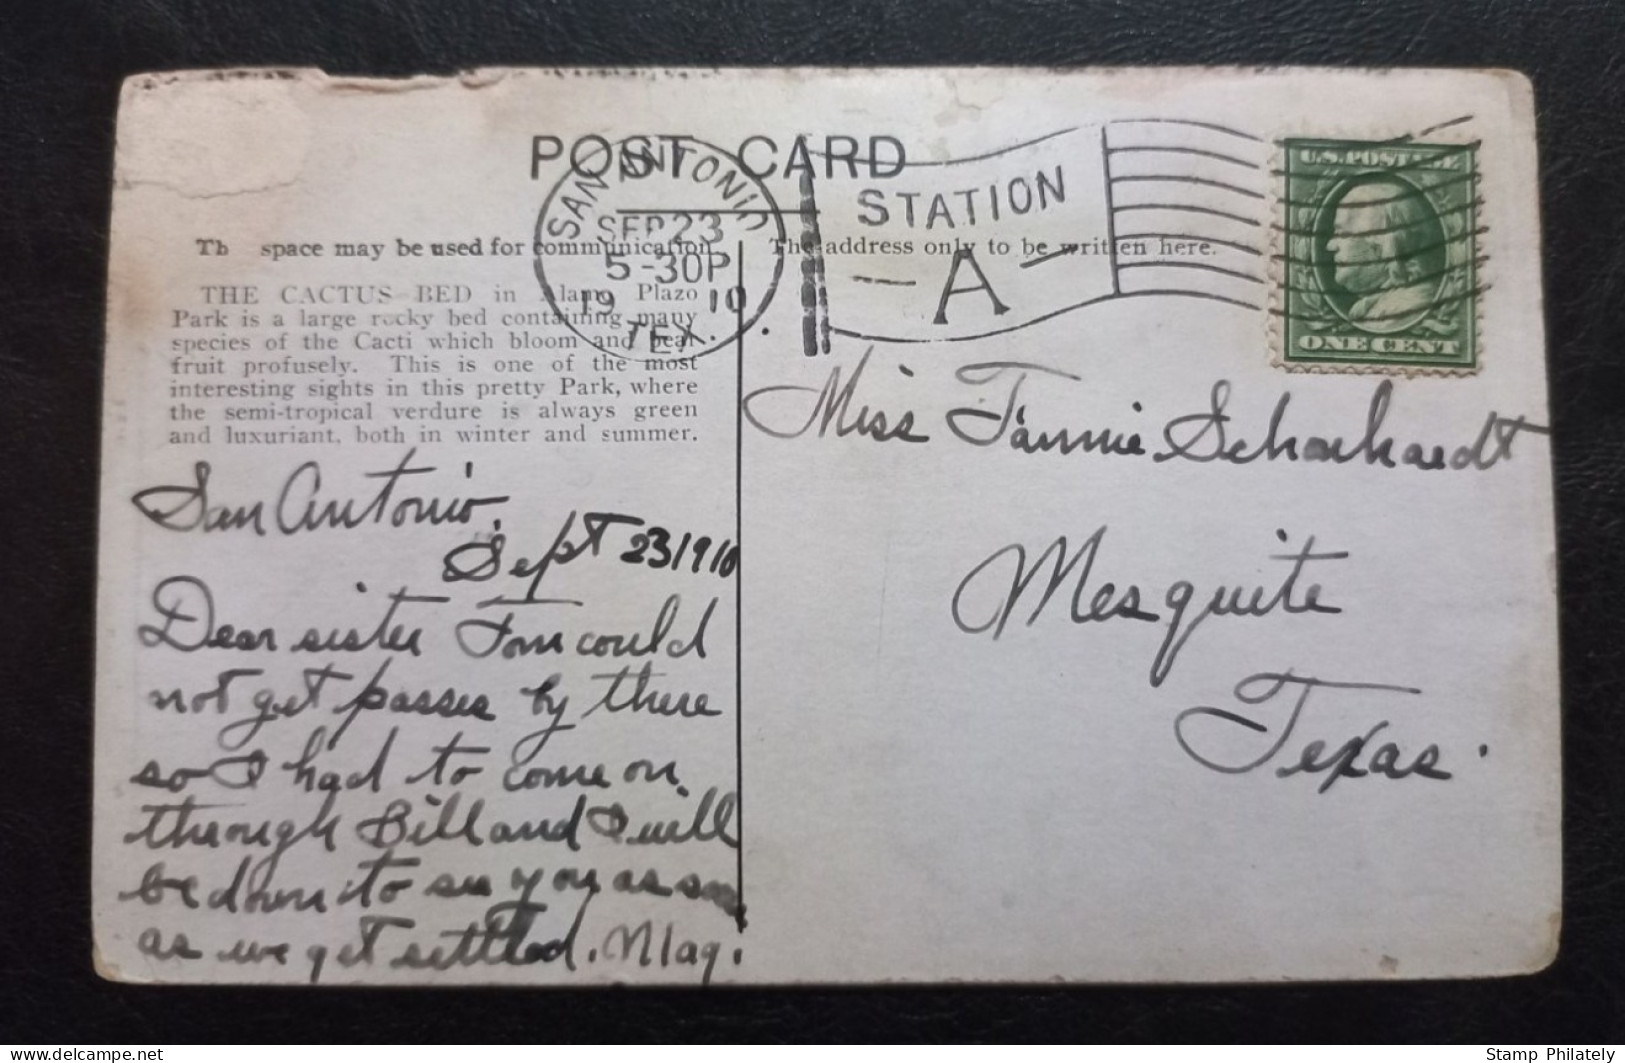 POST CARD
SAN ANTONIO
SEP 23
5-30P
1910
TEX.
STATION
A
U.S. POSTAGE
ONE CENT
Th space may be used for communication
The address only to be written here.
THE CACTUS BED in Alamo Plazo
Park is a large rocky bed containing many
species of the Cacti which bloom and bear
fruit profusely. This is one of the most
interesting sights in this pretty Park, where
the semi-tropical verdure is always green
and luxuriant, both in winter and summer.
San Antonio.
Sept 23/1910
Dear sister Tom could
not get passes by there
so I had to come on
through Bill and I will
be down to see you as soon
as we get settled. Mag.
Miss Fannie
Mesquite
Texas.
Stamp Philately